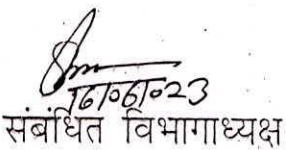 16/06/023
संबंधित विभागाध्यक्ष